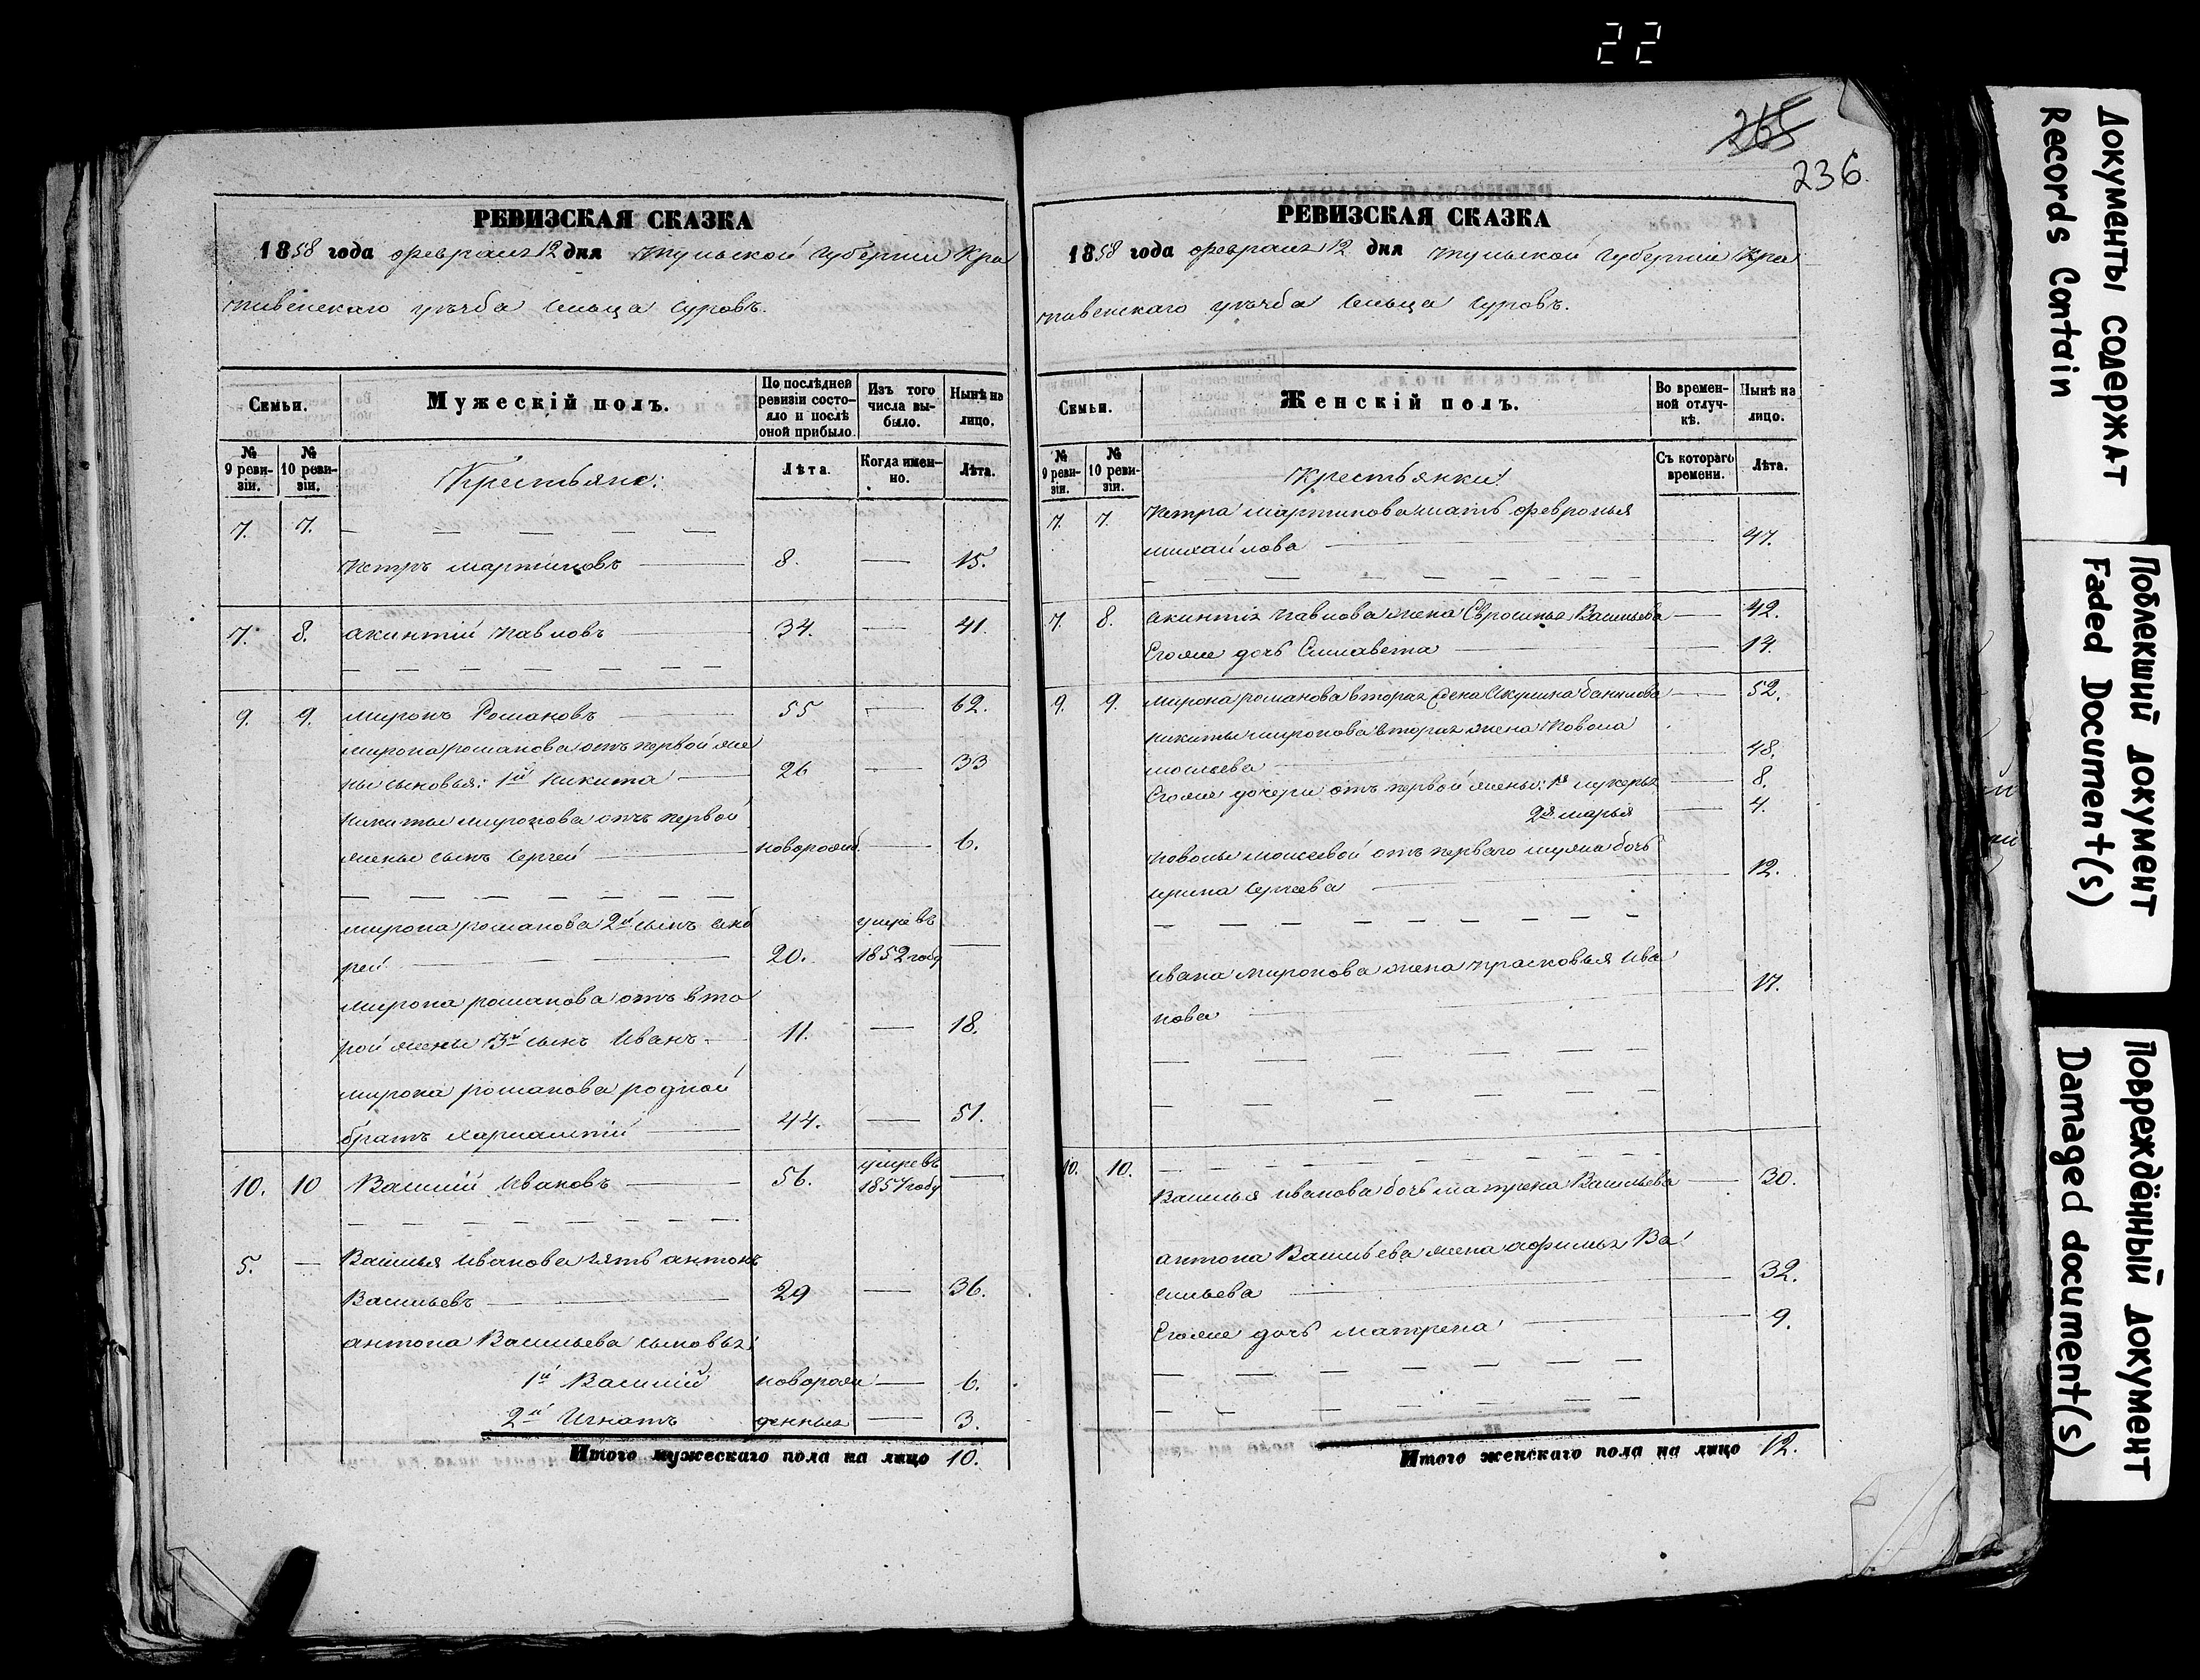 22
265
236
РЕВИЗСКАЯ СКАЗКА
1858 года февраля 12 дня Тульской Губернии Кра
пивенскаго уѣзда сельца Суровъ.
Семьи.
Мужескій полъ.
По послѣдней ревизіи состояло и послѣ оной прибыло
Изъ того числа выбыло.
Нынѣ на лицо.
№ 9 ревизіи.
№ 10 ревизіи.
Крестьяне:
Лѣта.
Когда именно.
Лѣта.
7. 7. — — — — —
Петръ Мартиновъ — 8. — 15.
7. 8. Акинтій Павловъ — 34. — 41.
— — — — — — —
9. 9. Миронъ Романовъ — 55 — 62.
Мирона Романова отъ первой же
ны сыновья: 1й Никита — 26 — 33
Никиты Миронова отъ первой
жены сынъ Сергей — новорожд. — 6.
— — — — — — —
Мирона Романова 2й сынъ Анд умре въ
рей — 20. 1852 году —
Мирона Романова отъ вто
рой жены 3й сынъ Иванъ. — 11. — 18.
Мирона Романова родной
братъ Харлампій — 44. — 51.
10. 10 Василий Ивановъ — 56. умре въ 1857 году —
— — — — — — —
5. — Василья Иванова зять Антонъ
Васильевъ — 29 — 36.
Антона Васильева сыновья
1й Василий новорож — 6.
2й Игнатъ денныя — 3.
Итого мужескаго пола на лицо 10.
РЕВИЗСКАЯ СКАЗКА
1858 года февраля 12 дня Тульской Губерніи Кра
пивенскаго уѣзда сельца Суровъ.
Семьи.
Женскій полъ.
Во временной отлучкѣ.
Нынѣ на лицо.
№ 9 ревизіи.
№ 10 ревизіи.
Крестьянки
Съ котораго времени.
Лѣта.
7. 7. Петра Мартинова мать Февронья
Михайлова — 47.
— — — — — — —
7. 8. Акинтія Павлова жена Евросинья Васильева — 42.
Егоже дочь Елисавета — 14.
9. 9. Мирона Романова вторая жена Акулина Данилова — 52.
Никиты Миронова вторая жена
— 48.
Егоже дочери отъ первой жены: 1я Лукерья — 8.
2я Марья — 4.
Моисеевой отъ перваго мужа дочь
Ирина Сергеева — 12.
— — — — — — —
Ивана Миронова жена Прасковья Ива
нова — 17.
— — — — — — —
— — — — — — —
10. 10. — — — — — — —
Василья Иванова дочь Матрена Васильева — 30.
Антона Васильева жена Афимья Ва
сильева — 32.
Егоже дочь Матрена — 9.
— — — — — — —
— — — — — — —
Итого женскаго пола на лицо 12.
Документы содержат
Records Contain
Поблекший документ
Faded Document(s)
Повреждённый документ
Damaged document(s)